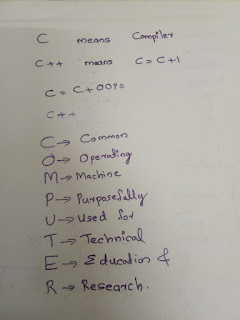 C means Compiler
C++ means C = C+1
C = C+OOPs
C++
C → Common
O → Operating
M → Machine
P → Purposefully
U → Used for
T → Technical
E → Education &
R → Research.